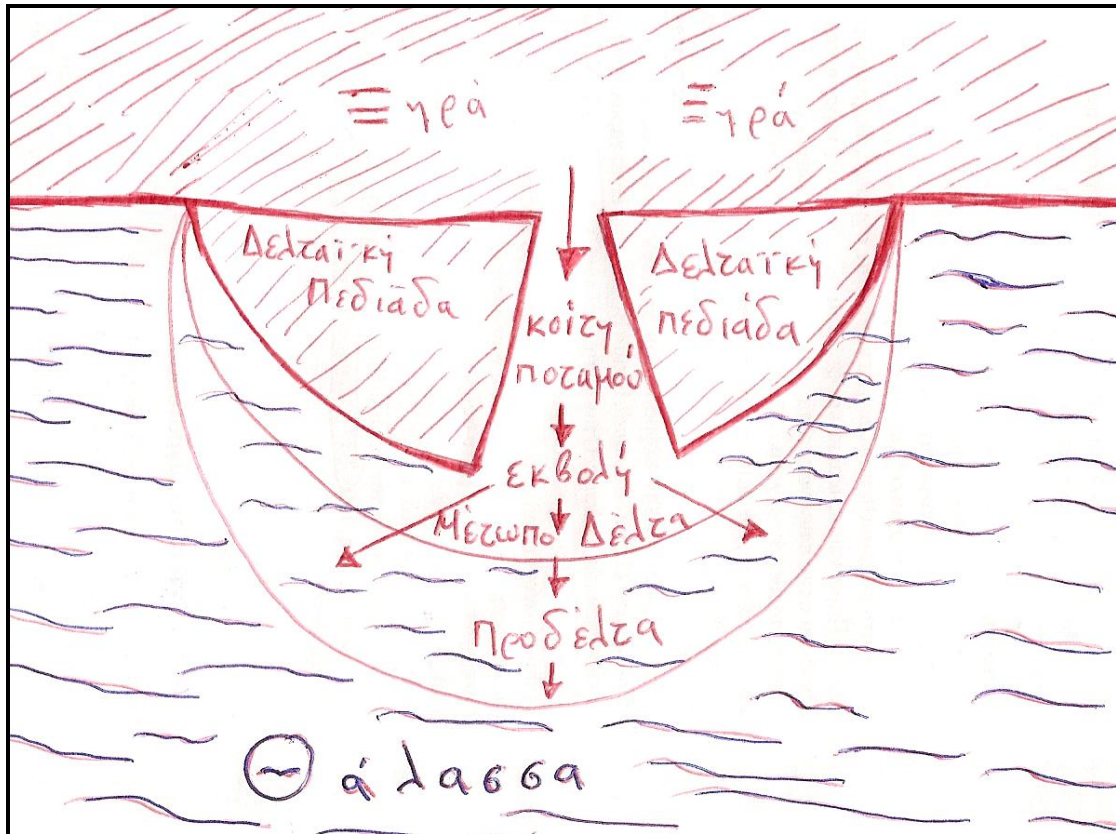 Ξηρά
Ξηρά
Δελταϊκή
Πεδιάδα
Δελταϊκή
πεδιάδα
κοίτη
ποταμού
εκβολή
Μέτωπο Δέλτα
Προδέλτα
Θάλασσα